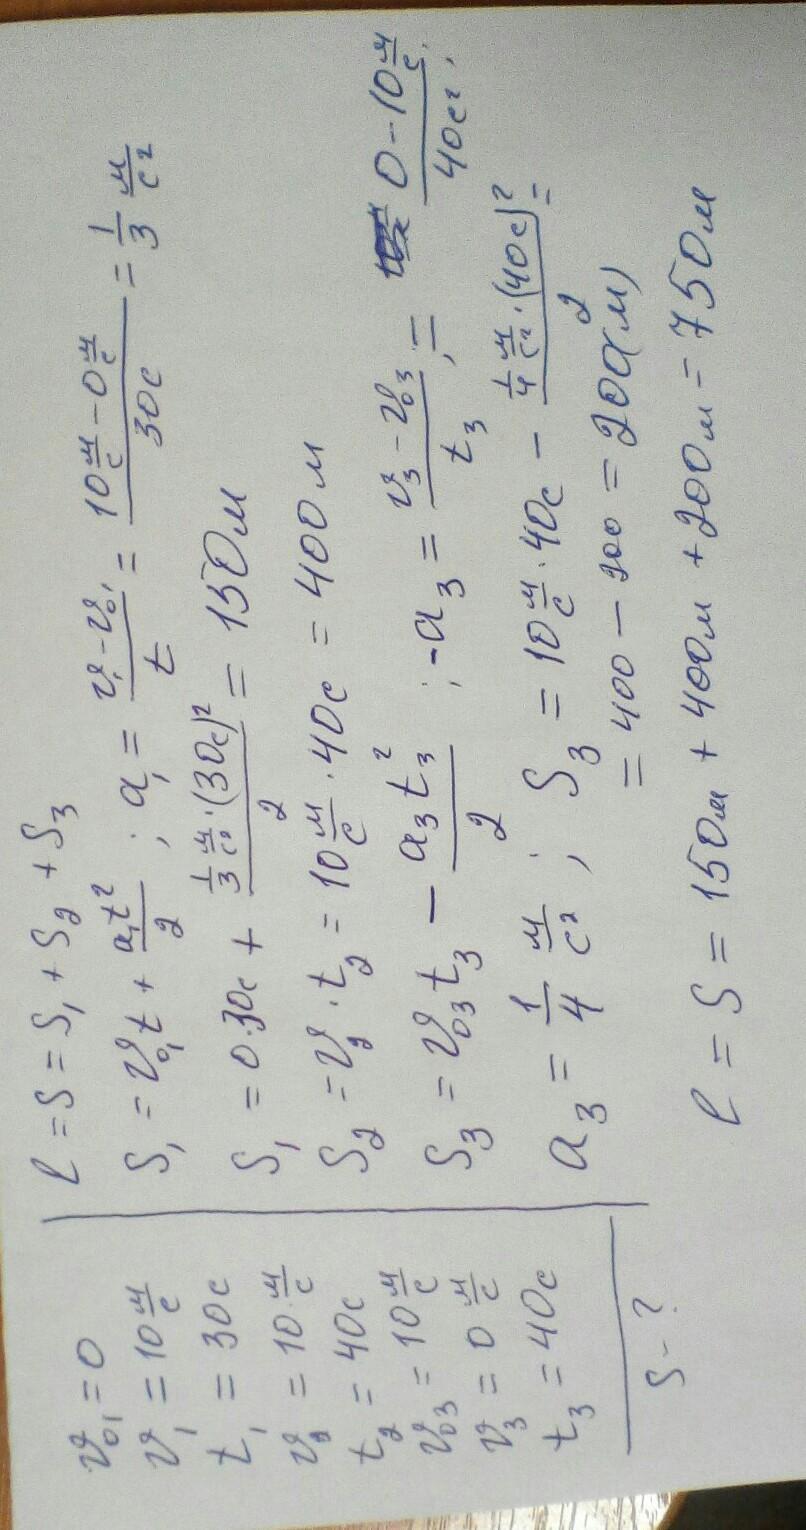 v₀₁ = 0
v₁ = 10 м/с
t₁ = 30с
v₂ = 10 м/с
t₂ = 40с
v₀₃ = 10 м/с
v₃ = 0 м/с
t₃ = 40с
S - ?
l = S = S₁ + S₂ + S₃
S₁ = v₀₁t + a₁t²/2 ; a₁ = (v₁ - v₀₁)/t = (10 м/с - 0 м/с)/30с = 1/3 м/с²
S₁ = 0·30с + (1/3 м/с² · (30с)²)/2 = 150м
S₂ = v₂ · t₂ = 10 м/с · 40с = 400м
S₃ = v₀₃t₃ - a₃t₃²/2 ; -a₃ = (v₃ - v₀₃)/t₃ ; = (0 - 10 м/с)/40с² ;
a₃ = 1/4 м/с² ; S₃ = 10 м/с · 40с - (1/4 м/с² · (40с)²)/2 =
= 400 - 200 = 200(м)
l = S = 150м + 400м + 200м = 750м